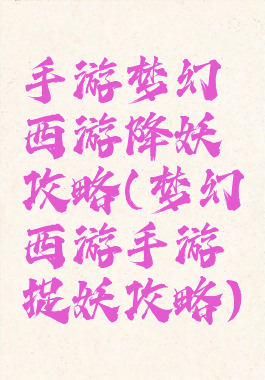 手游梦幻
西游降妖
攻略(梦幻
西游手游
捉妖攻略)